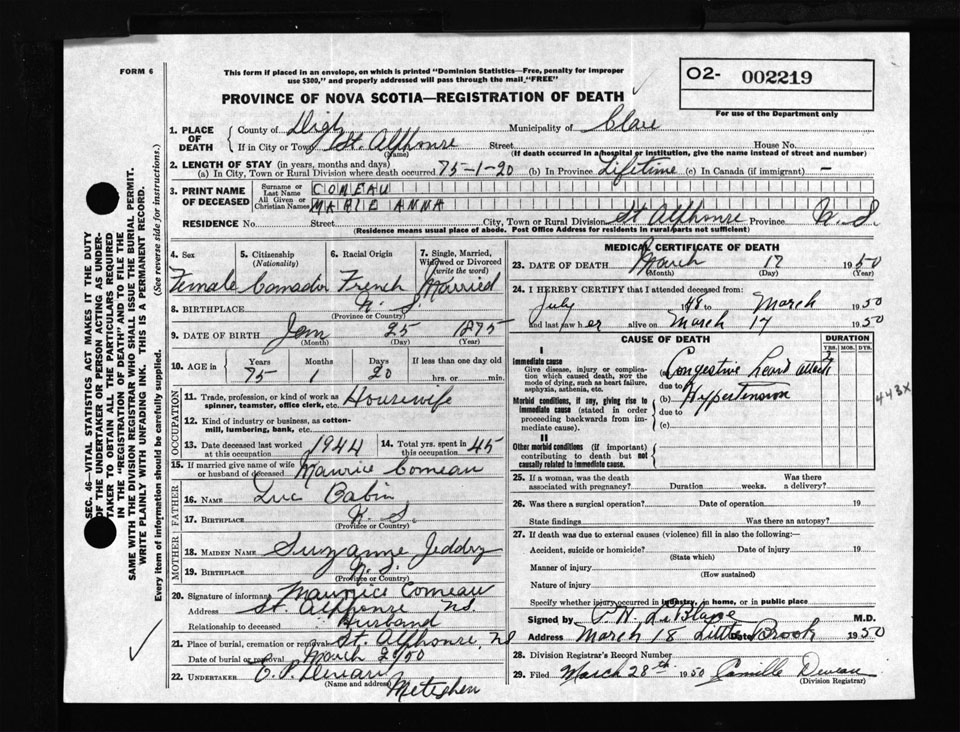 FORM 6
This form if placed in an envelope, on which is printed "Dominion Statistics—Free, penalty for improper
use $300," and properly addressed will pass through the mail "FREE"
PROVINCE OF NOVA SCOTIA—REGISTRATION OF DEATH
O2- 002219
For use of the Department only
1. PLACE OF DEATH
County of Digby Municipality of Clare
If in City or Town St. Alphonse Street House No.
(Name) (If death occurred in a hospital or institution, give the name instead of street and number)
2. LENGTH OF STAY (in years, months and days)
(a) In City, Town or Rural Division where death occurred 75-1-20 (b) In Province Lifetime (c) In Canada (if immigrant) —
3. PRINT NAME OF DECEASED
Surname or Last Name COMEAU
All Given or Christian Names MARIE ANNA
RESIDENCE No. Street City, Town or Rural Division St Alphonse Province N.S.
(Residence means usual place of abode. Post Office Address for residents in rural parts not sufficient)
4. Sex Female
5. Citizenship (Nationality)
6. Racial Origin French
7. Single, Married, Widowed or Divorced (write the word) Married
8. BIRTHPLACE N. S.
(Province or Country)
9. DATE OF BIRTH Jan 25 1875
(Month) (Day) (Year)
10. AGE in Years 75 Months 1 Days 20 If less than one day old hrs. or min.
OCCUPATION
11. Trade, profession, or kind of work as spinner, teamster, office clerk, etc. Housewife
12. Kind of industry or business, as cotton-mill, lumbering, bank, etc.
13. Date deceased last worked at this occupation 1944
14. Total yrs. spent in this occupation 45
15. If married give name of wife or husband of deceased Maurice Comeau
FATHER
16. NAME Luc Babin
17. BIRTHPLACE N. S.
(Province or Country)
MOTHER
18. MAIDEN NAME Suzanne Jeddry
19. BIRTHPLACE N. S.
(Province or Country)
20. Signature of informant Maurice Comeau
Address St. Alphonse N.S.
Relationship to deceased Husband
21. Place of burial, cremation or removal St. Alphonse, N.S.
Date of burial or removal March 50
22. UNDERTAKER
(Name and address) Meteghan
MEDICAL CERTIFICATE OF DEATH
23. DATE OF DEATH March 17 1950
(Month) (Day) (Year)
24. I HEREBY CERTIFY that I attended deceased from:
July 1948 to March 1950
and last saw her alive on March 17 1950
CAUSE OF DEATH
DURATION
YRS. MOS. DYS.
I
Immediate cause
Give disease, injury or complication which caused death, NOT the mode of dying, such as heart failure, asphyxia, asthenia, etc.
(a) Congestive heart
due to
Morbid conditions, if any, giving rise to immediate cause (stated in order proceeding backwards from immediate cause).
(b) Hypertension
due to
(c)
443X
II
Other morbid conditions (if important) contributing to death but not causally related to immediate cause.
25. If a woman, was the death associated with pregnancy? Duration weeks. Was there a delivery?
26. Was there a surgical operation? Date of operation 19
State findings Was there an autopsy?
27. If death was due to external causes (violence) fill in also the following:—
Accident, suicide or homicide? Date of injury 19
(State which)
Manner of injury
(How sustained)
Nature of injury
Specify whether injury occurred in industry, in home, or in public place
Signed by LeBlanc M.D.
Address March 18 Little Brook Date 1950
28. Division Registrar's Record Number
29. Filed March 28th 1950 Camille
(Division Registrar)
SEC. 46—VITAL STATISTICS ACT MAKES IT THE DUTY
OF THE UNDERTAKER OR PERSON ACTING AS UNDER-
TAKER TO OBTAIN ALL THE PARTICULARS REQUIRED
IN THE "REGISTRATION OF DEATH" AND TO FILE THE
SAME WITH THE DIVISION REGISTRAR WHO SHALL ISSUE THE BURIAL PERMIT.
WRITE PLAINLY WITH UNFADING INK. THIS IS A PERMANENT RECORD.
Every item of information should be carefully supplied. (See reverse side for instructions.)